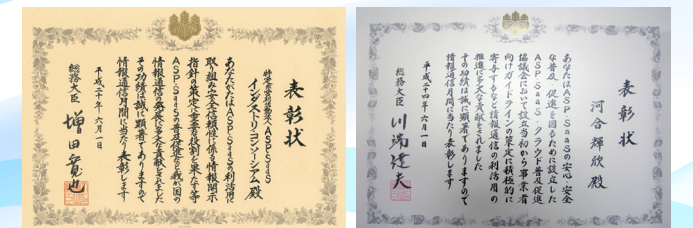 表彰状
特定非営利活動法人ASPSaaS
インダストリ・コンソーシアム殿
あなたがたはASP・SaaSの利活用に
取り組み安全信頼性に係る情報開示
指針の策定に重要な役割を果たす等
ASP・SaaSの普及促進を通じ我が国の
情報通信の発展に多大な貢献をされました
その功績は誠に顕著でありますので
情報通信月間に当たり表彰します
平成二十年六月一日
総務大臣 増田寛也
表彰状
河合輝欣殿
あなたはASP・SaaSの安心・安全
な普及、促進を図るために設立した
ASP・SaaS・クラウド普及促進
協議会において設立当初から事業者
向けガイドラインの策定に積極的に
寄与するなど情報通信の利活用の
推進に多大な貢献をされました
その功績は誠に顕著でありますので
情報通信月間に当たり表彰します
平成二十四年六月一日
総務大臣 川端達夫